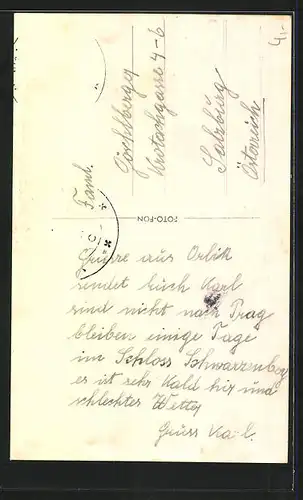 4,-
Famil.
Göschlberger
gasse 4-6
Salzburg
Österreich
FOTO-FON
Grüsse aus Orlik
sendet Euch Karl
sind nicht nach Prag
bleiben einige Tage
im Schloss Schwarzenberg
es ist sehr kald hir und
schlechter Wetter
Gruss Karl.